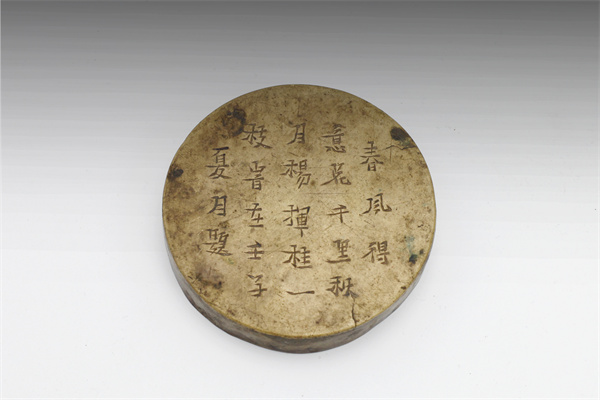 春風得
意花千里秋
月楊揮桂一
枝旹在壬子
夏月題